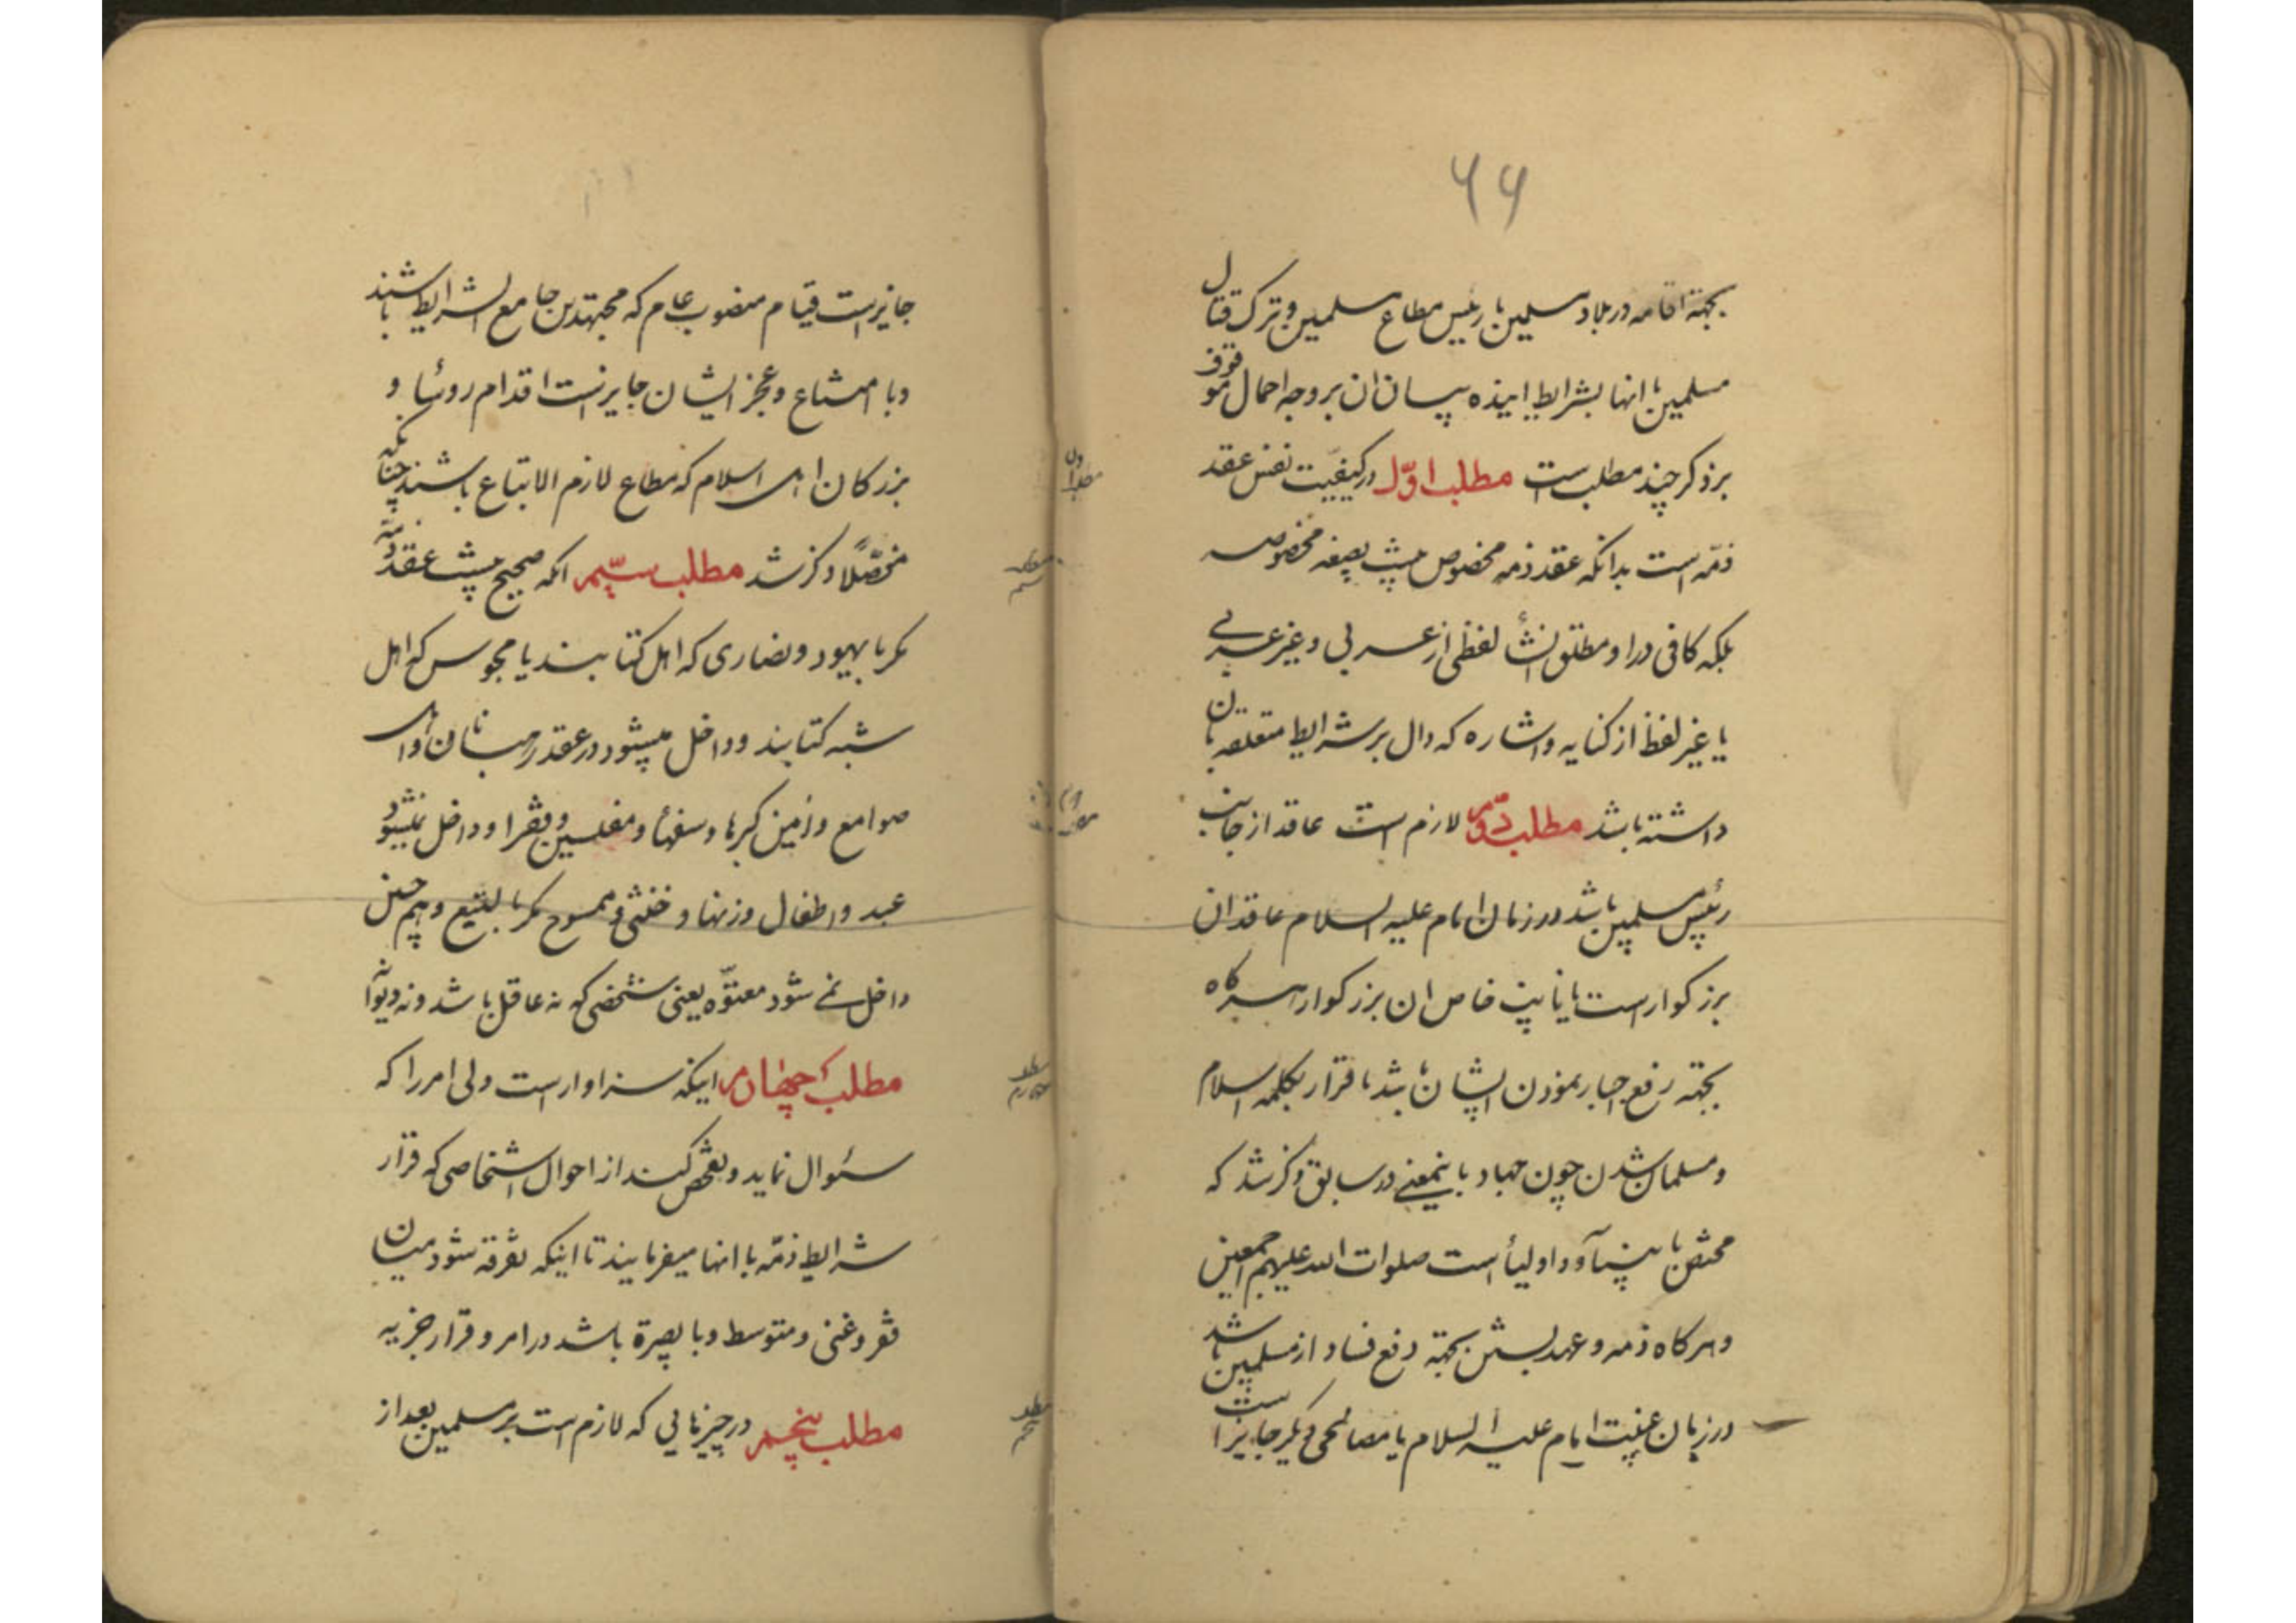 ۶۶
بجهة اقامه در بلاد مسلمین با رئیس مطاع مسلمین و ترک قتال
مسلمین با انها بشرایط اینده بیان ان بر وجه اجمال موقوف
بر ذکر چند مطلب است مطلب اوّل در کیفیّت نفس عقد
ذمّه است بدانکه عقد ذمه مخصوص نیست بصیغه مخصوصه
بلکه کافی در او مطلق انشأ لفظی از عربی و غیر عربی
یا غیر لفظ از کنایه و اشاره که دال بر شرایط متعلقه بان
داشته باشد مطلب دوّم لازم است عاقد از جانب
رئیس مسلمین باشد در زمان امام علیه السلام عاقد ان
بزرکوار است یا نایب خاص ان بزرکوار هرکاه
بجهة رفع اجبار نمودن ایشان باشد با قرار بکلمه اسلام
و مسلمان شدن چون جهاد باینمعنی در سابق ذکر شد که
مختص با نبیآء و اولیأ است صلوات الله علیهم اجمعین
و هرکاه ذمه و عهد بستن بجهة دفع فساد از مسلمین باشد
در زمان غیبت امام علیه السلام یا مصالحی دیکر جایز است
مطلب اول
مطلب دوم
جایز است قیام منصوب عام که مجتهدین جامع الشرایط باشند
و با امتناع و عجز ایشان جایز است اقدام روئسا و
بزرکان اهل اسلام که مطاع لازم الاتباع باشند چنانکه
مفصّلاً ذکر شد مطلب سیّم انکه صحیح نیست عقد ذمّه
مکر با یهود و نصاری که اهل کتابند یا مجوس که اهل
شبه کتابند و داخل میشود در عقد رهبانان و اهل
صوامع و زمین کیرها و سفهأ و مفلسین و فقرا و داخل نمیشود
عبد و اطفال و زنها و خنثی و ممسوح مکر بالتبع و همچنین
داخل نمے شود معتوّه یعنی شخصی که نه عاقل باشد و نه دیوانه
مطلب چهارم اینکه سزاوار است ولی امر را که
سئوال نماید و تفحص کند از احوال اشخاصی که قرار
شرایط ذمّه با انها میفرمایند تا اینکه تفرقه شود میان
فقر و غنی و متوسط و با بصیرة باشد در امر و قرار جزیه
مطلب پنجم در چیزهایی که لازم است بر مسلمین بعد از
مطلب سیم
مطلب چهارم
مطلب پنجم